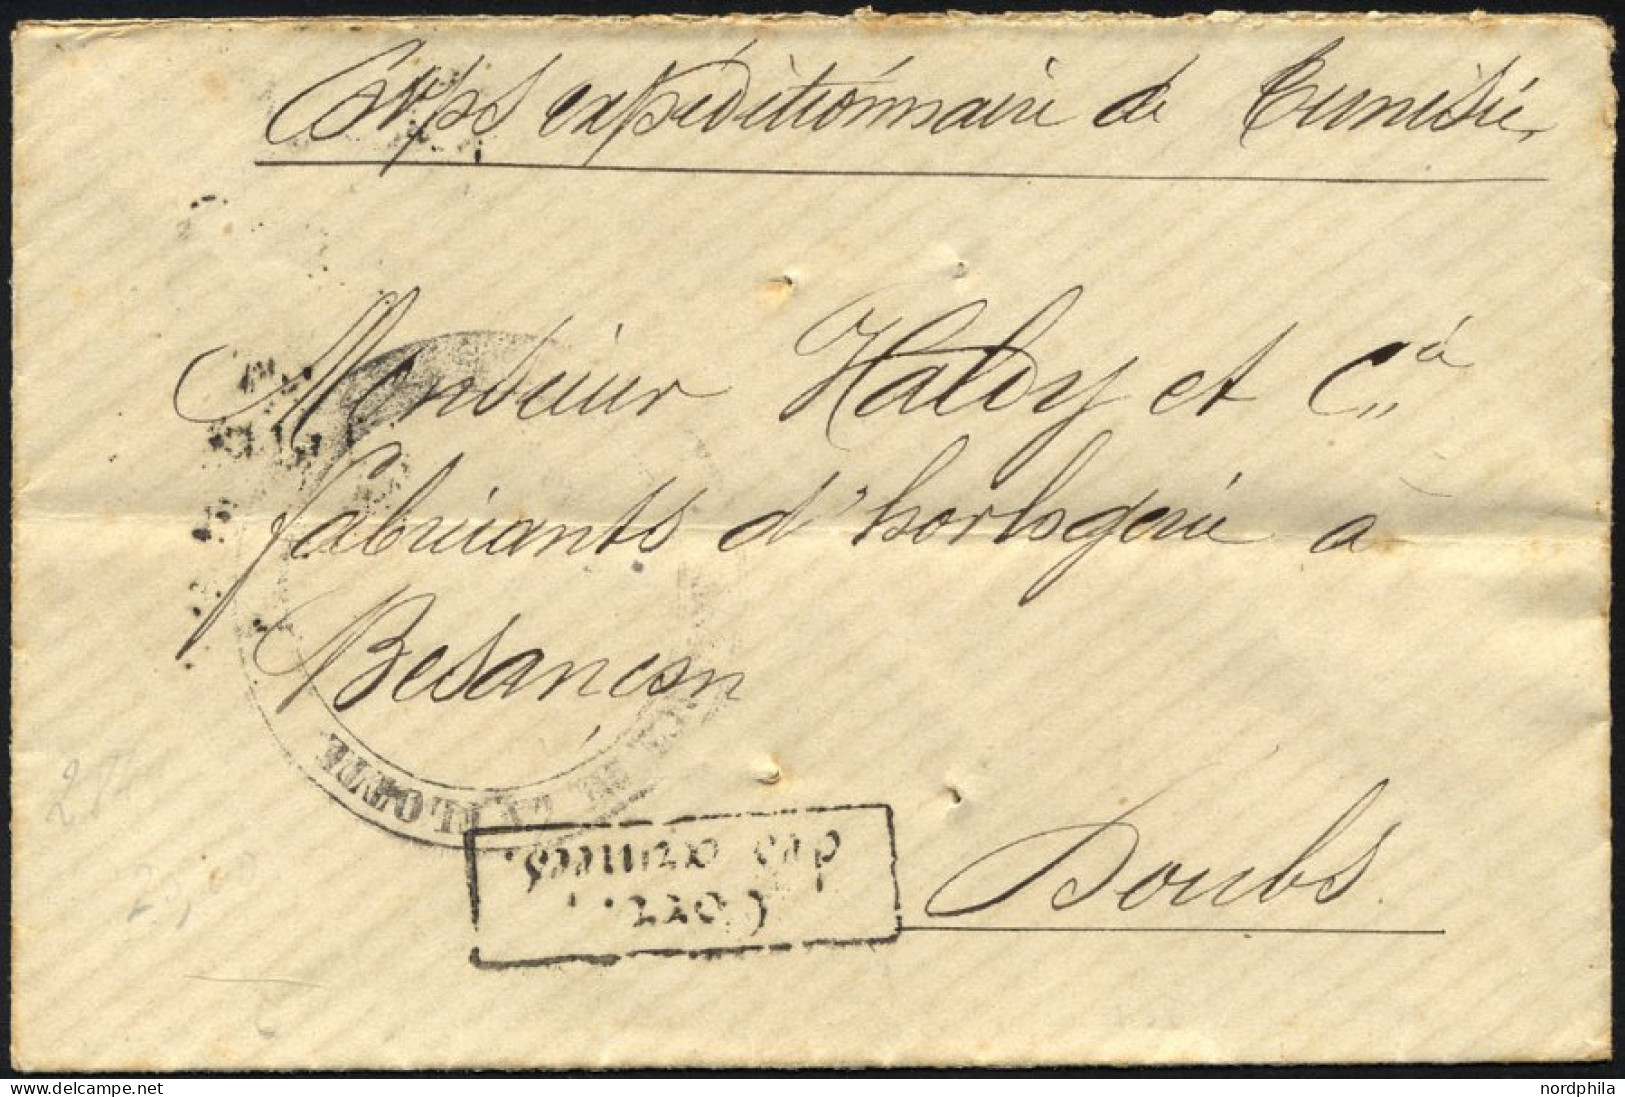 Corps expéditionnaire de Tunisie
Monsieur Haldy et Cie
fabricants d'horlogerie à
Besançon
Doubs
Corr.
des armées.
DE LA FLOTTE
25,00
nordphila